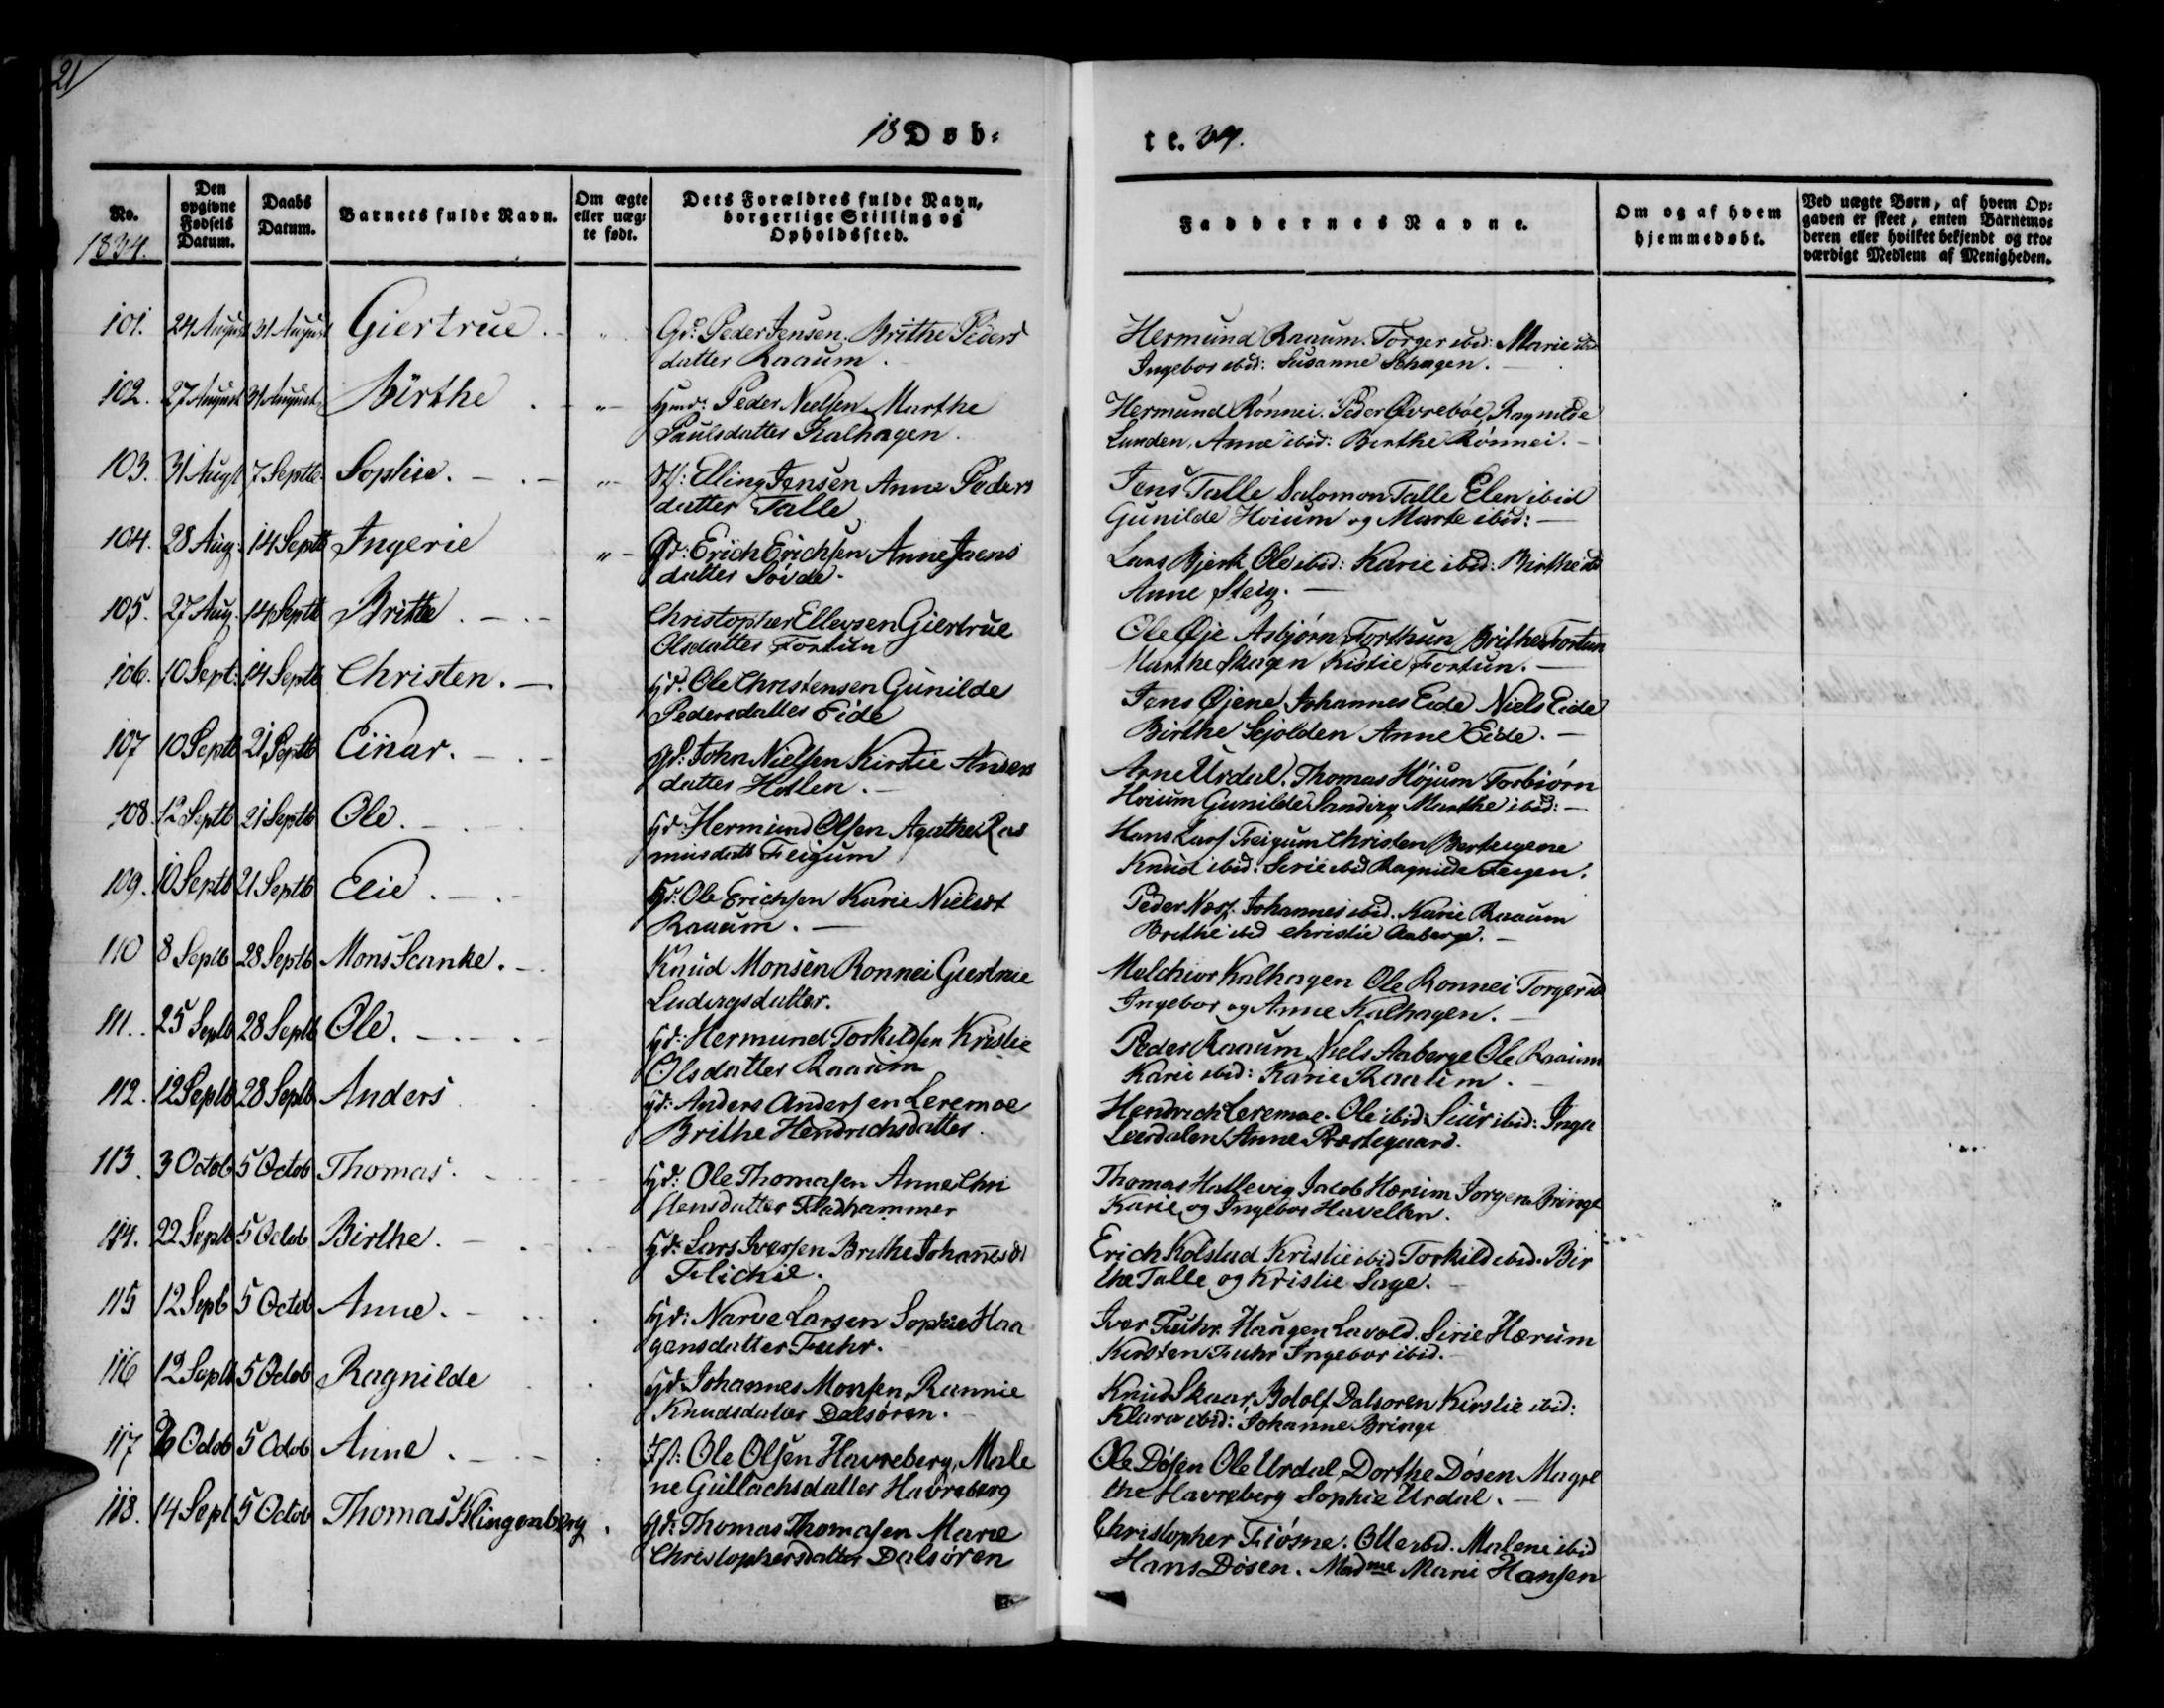 21
18 Døb=
te. 34.
No.
1834.
Den opgivne Fødsels Datum.
Daabs Datum.
Barnets fulde Navn.
Om ægte eller uæg= te født.
Dets Forældres fulde Navn, borgerlige Stilling og Opholdssted.
Faddernes Navne.
Om og af hvem hjemmedøbt.
Ved uægte Børn, af hvem Op= gaven er skeet, enten Barnemo= deren eller hvilket bekjendt og tro= værdigt Medlem af Menigheden.
101. 24 August 31 August Giertrue. " Gd: Peder Jensen. Brithe Peders
datter Raaum.
Hermund Raaum. Torger ibid: Marie ibid
Ingebor ibid: Susanne Schagen.
102. 27 August 31 August Birthe " Hmd: Peder Nielsen Marthe
Paulsdatter Kalhagen.
Hermund Rönnei. Peder Øvrebøe, Ragnilde
Lunden, Anne ibid: Birthe Rönnei.
103. 31 Augt 7 Septb. Sophie. " Elling Jensen Anne Peders
datter Talle
Jens Talle Salomon Talle Elen ibid
Gunilde Hoium og Marte ibid:
104. 28 Aug: 14 Septb Ingerie " Gd: Erich Erichsen Anne Jaens
datter Sövde.
Lars Bjerk Ole ibid: Karie ibid: Birthe ibd
Anne Steig.
105. 27 Aug. 14 Septb Brithe. Christopher Ellevsen Giertrue
Olsdatter Fortun
Ole Øje Asbjørn Forthun Brithe Fortun
Marthe Skagen Kistie Fortun.
106. 10 Sept: 14 Septb Christen. Gd: Ole Christensen Gunilde
Pedersdatter Eide
Jens Øjene Johannes Eide Niels Eide
Birthe Skjolden Anne Eide.
107 10 Septb 21 Septb Einar. Gd: John Nielsen Kirstie Anders
datter Hollen.
Arne Urdal. Thomas Højum Torbiørn
Hoium Gunilde Sandvig Marthe ibid:
108. 12 Septb 21 Septb Ole. Gd: Hermund Olsen Agathe Ras
musdatt Feigum
Hans Lars Feigum Christen Berteigene
Knud ibid: Serie ibid Ragnilde Feigen.
109. 10 Septb 21 Septb Elie. Gd: Ole Erichsen Karie Nielsdt
Raaum.
Peder Næs. Johannes ibid. Karie Raaum
Brithe ibd christie Aaberge.
110 8 Septb 28 Septb Mons Scanke. Knud Monsen Ronnei Giertrue
Ludvigsdatter.
Melchior Kalhagen Ole Ronnei Torger ib
Ingebor og Anne Kalhagen.
111. 25 Septb 28 Septb Ole. Gd: Hermund Torkildsen Kristie
Olsdatter Raaum
Peder Raaum Niels Aaberge Ole Raaum
Karie ibid: Karie Raaum.
112. 12 Septb 28 Septb Anders Gd: Anders Andersen Leremoe
Brithe Hendrichsdatter.
Hendrich Leremoe. Ole ibid: Siur ibid: Inga
Leerdalen Anne Præstegaard.
113. 3 Octob 5 Octob Thomas. Gd: Ole Thomasen Anne Chri
stensdatter Fladhammer
Thomas Hattevig Jacob Hærum Jorgen Bringe
Karie og Ingebor Havelten.
114. 22 Septb 5 Octob Birthe. Gd: Lars Iversen Brithe Johannesdt
Flickie.
Erich Kolstad Kristie ibid Torkild ibid. Bir
the Talle og Kristie Sage.
115 12 Sept 5 Octob Anne. Gd: Narve Larsen Sophie Haa
gensdatter Fuhr.
Iver Fuhr. Haagen Lavold. Sirie Hærum
Kirsten Fuhr Ingebor ibid.
116 12 Septb 5 Octob Ragnilde Gd Johannes Monsen Rannie
Knudsdatter Dalsøren.
Knud Skaar, Botolf Dalsoren Kirstie ibid:
Klara ibid: Johanne Bringe
117 Octob 5 Octob Anne. Ole Olsen Havreberg, Male
ne Gullachsdatter Havreberg
Ole Døsen Ole Urdal, Dorthe Døsen Magre
the Havreberg Sophie Urdal.
118. 14 Sept 5 Octob Thomas Klingenberg. Gd: Thomas Thomasen Marie
Christophersdatter Dalsøren
Christopher Fiøsne. Olle ibd. Malene ibid
Hans Døsen. Madme Marie Hansen